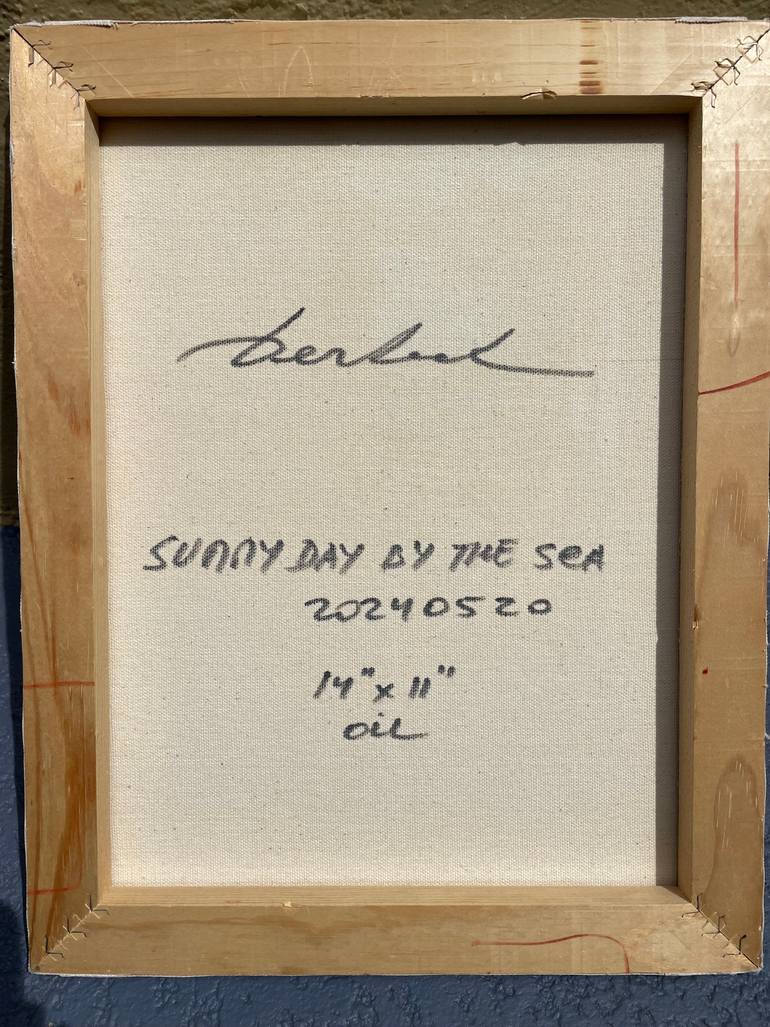 SUNNY DAY BY THE SEA
20240520
14" x 11"
oil